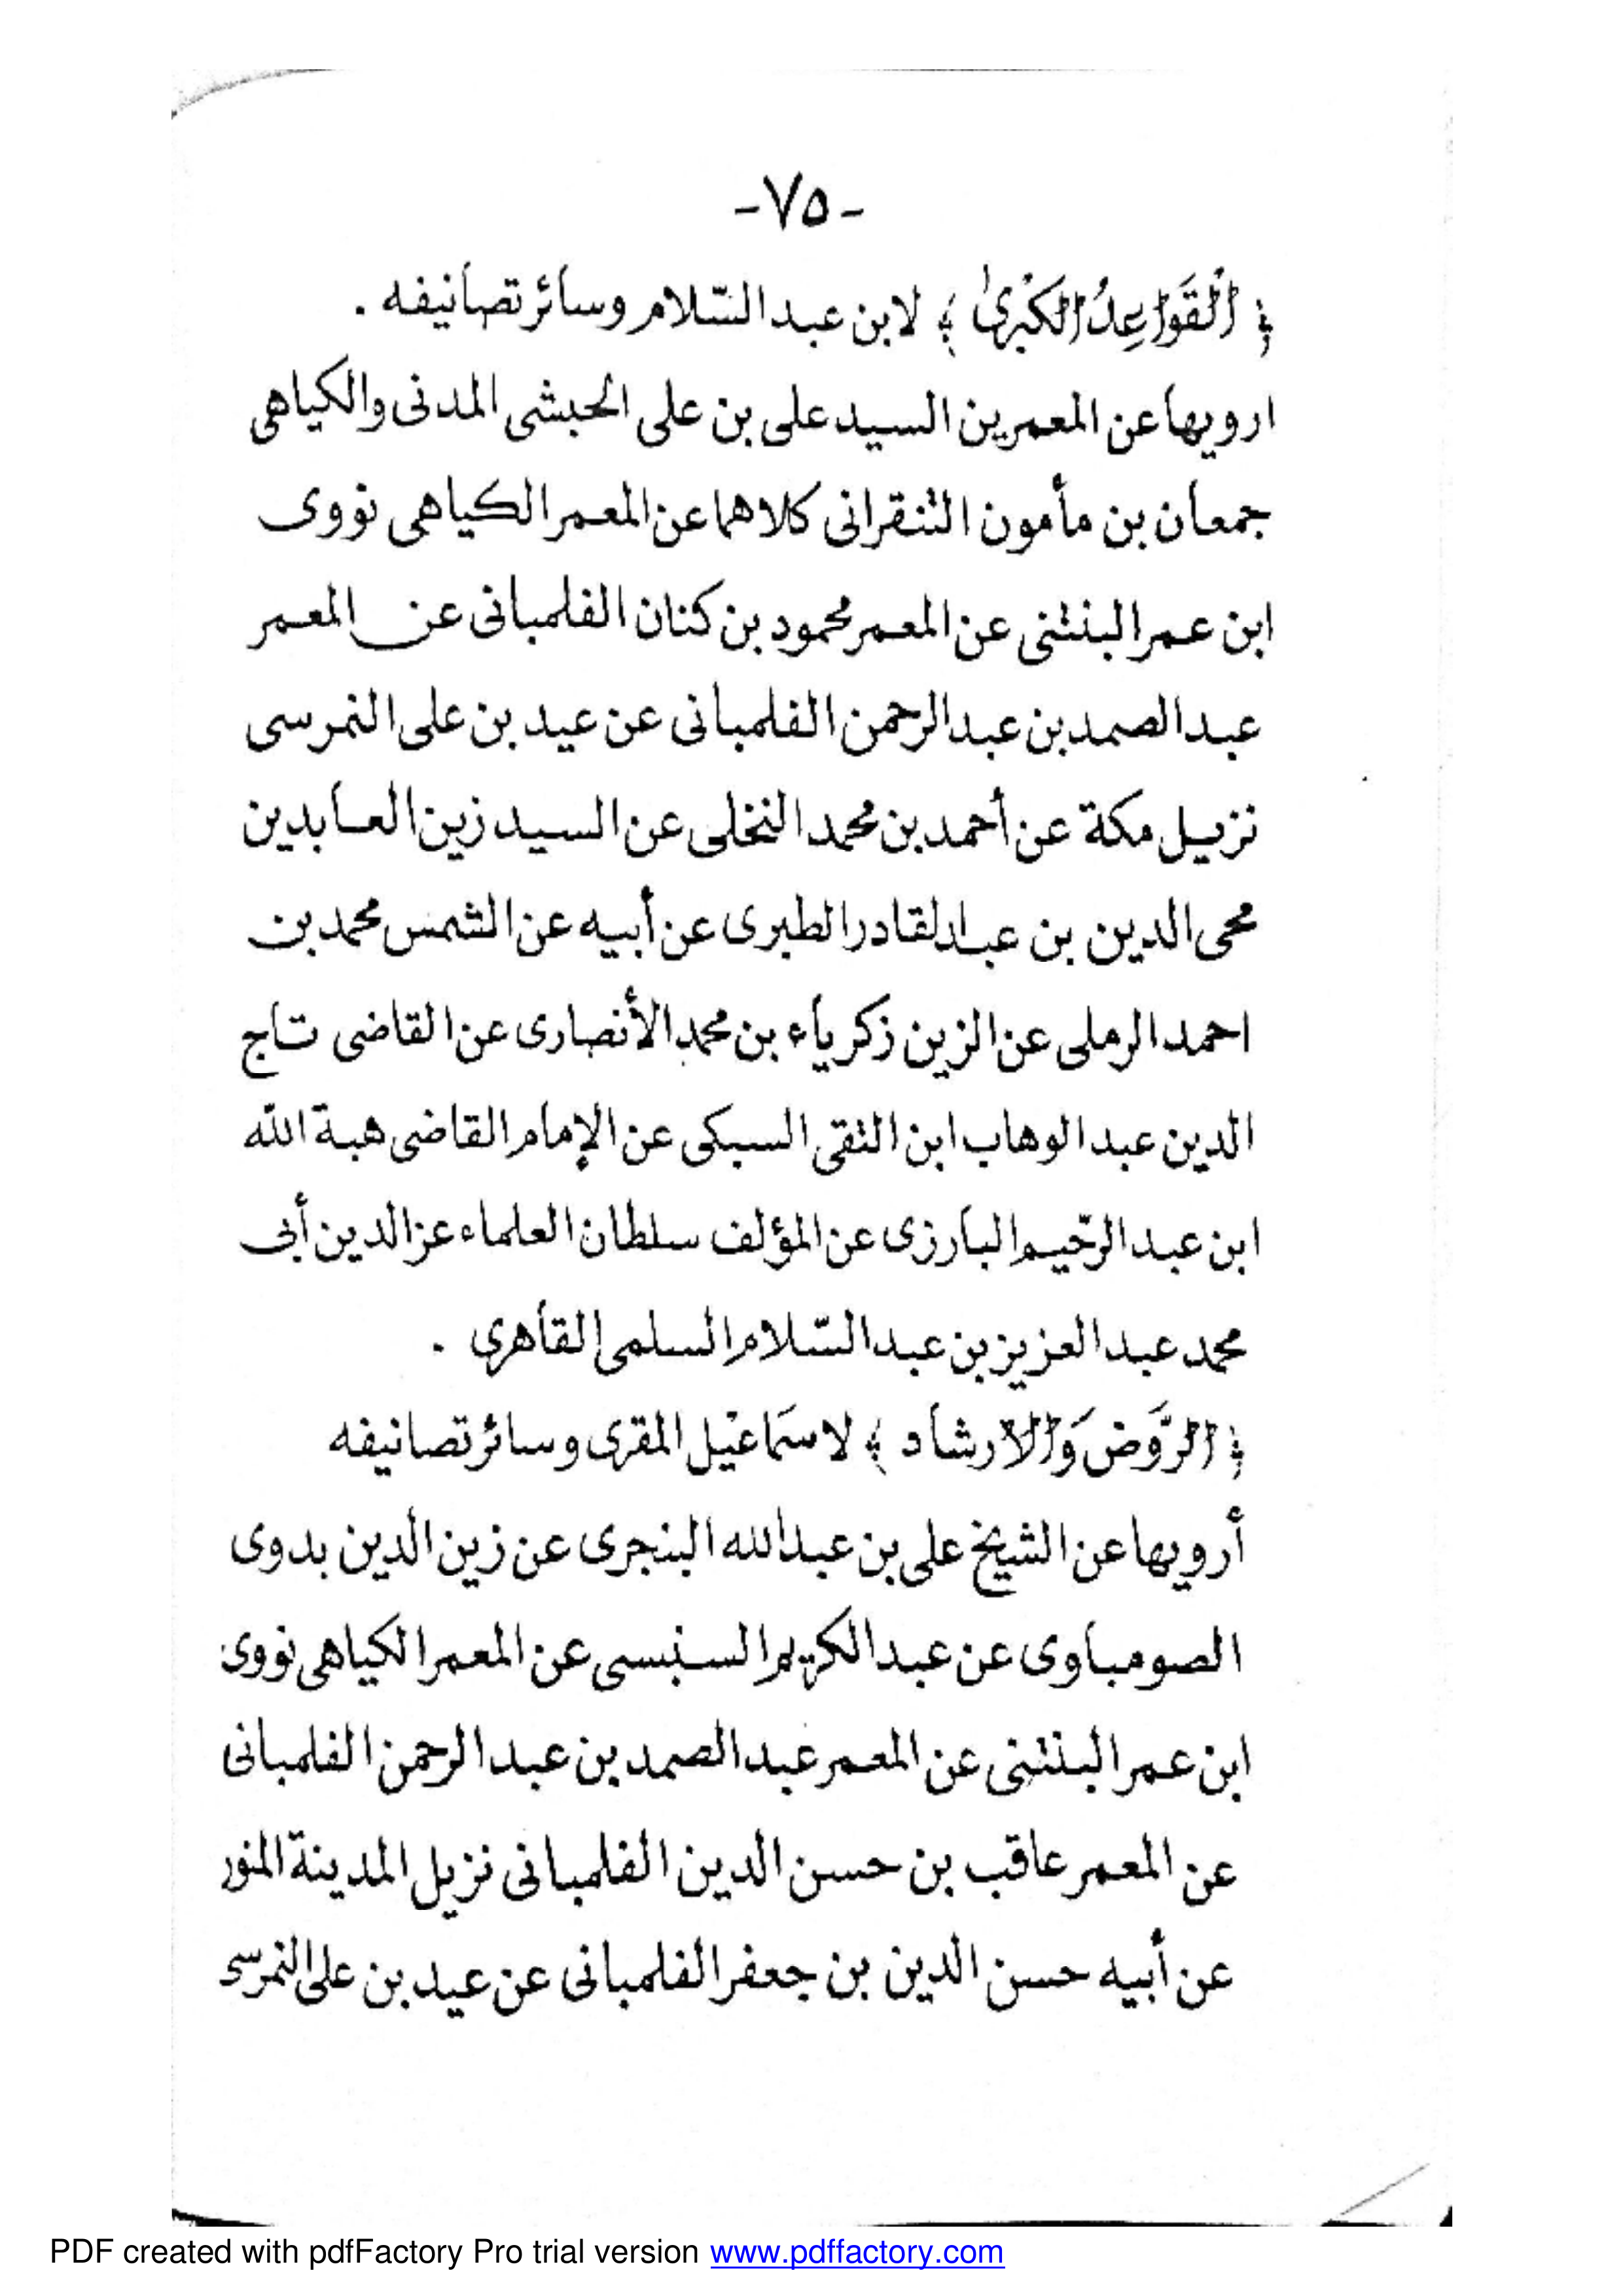 -٧٥-
﴿ اَلْقَوَاعِدُ الكُبْرىٰ ﴾ لابن عبد السّلام وسائر تصانيفه .
ارويها عن المعمرين السيد على بن على الحبشى المدنى والكياهى
جمعان بن مأمون التنقرانى كلاهما عن المعمر الكياهى نووى
ابن عمر البنتنى عن المعمر محمود بن كنان الفلمبانى عن المعمر
عبد الصمد بن عبد الرحمن الفلمبانى عن عيد بن على النمرسى
نزيل مكة عن أحمد بن محمد النخلى عن السيد زين العابدين
محى الدين بن عبد القادر الطبرى عن أبيه عن الشمس محمد بن
احمد الرملى عن الزين زكرياء بن محمد الأنصارى عن القاضى تاج
الدين عبد الوهاب ابن التقى السبكى عن الإمام القاضى هبة الله
ابن عبد الرّحيم البارزى عن المؤلف سلطان العلماء عز الدين أبى
محمد عبد العزيز بن عبد السّلام السلمى القاهرى .
﴿ اَلرَّوض وَالْاِرشاد ﴾ لاسمَاعيْل المقرى وسائر تصانيفه
أرويها عن الشيخ على بن عبد الله البنجرى عن زين الدين بدوى
الصومباوى عن عبد الكريم السنبسى عن المعمر الكياهى نووى
ابن عمر البنتنى عن المعمر عبد الصمد بن عبد الرحمن الفلمبانى
عن المعمر عاقب بن حسن الدين الفلمبانى نزيل المدينة المنور
عن أبيه حسن الدين بن جعفر الفلمبانى عن عيد بن على النمرسى
PDF created with pdfFactory Pro trial version www.pdffactory.com